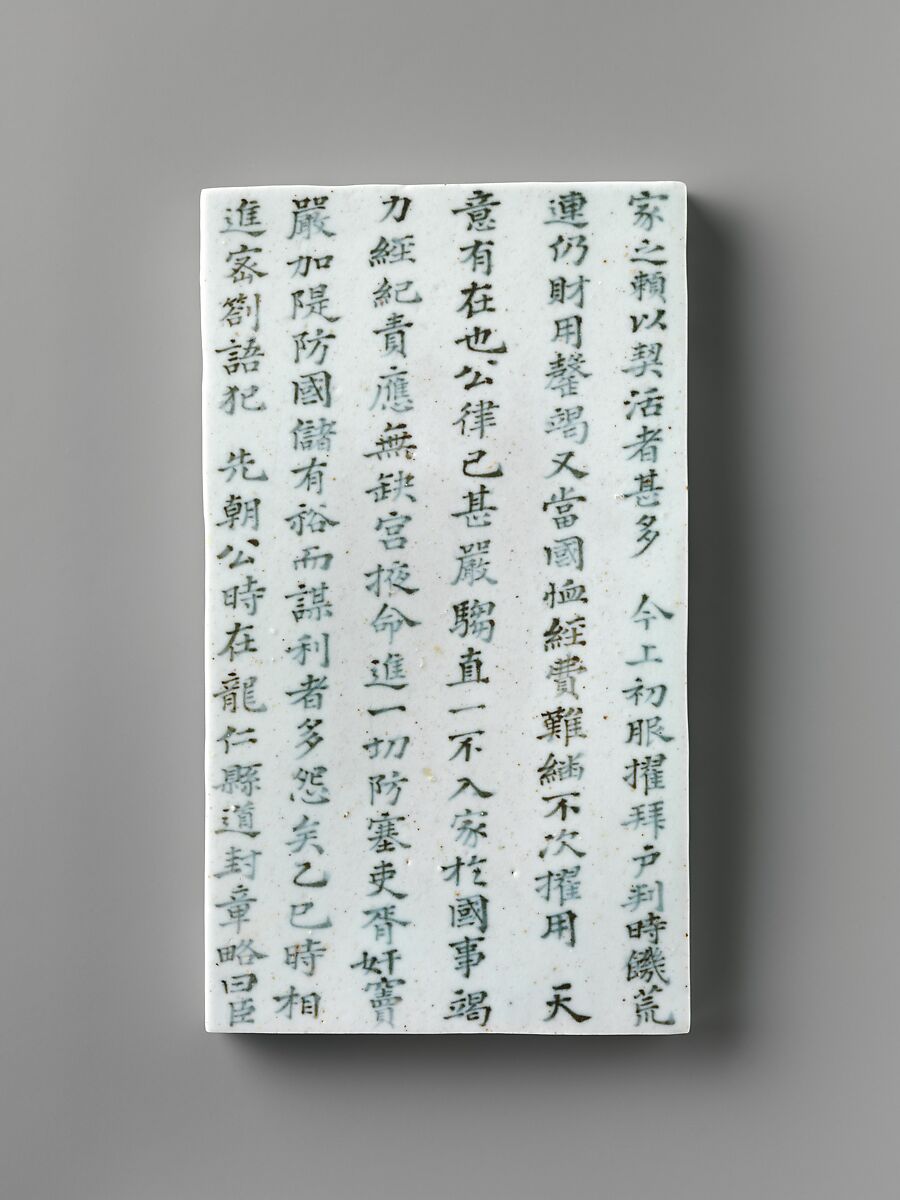 家之賴以契活者甚多 今上初服擢拜戶判時饑荒
連仍財用罄竭又當國恤經費難繼不次擢用 天
意有在也公律己甚嚴騶直一不入家於國事竭
力經紀責應無缺宮掖命進一切防塞吏胥奸竇
嚴加隄防國儲有裕而謀利者多怨矣乙巳時相
進密箚語犯 先朝公時在龍仁縣道封章略曰臣